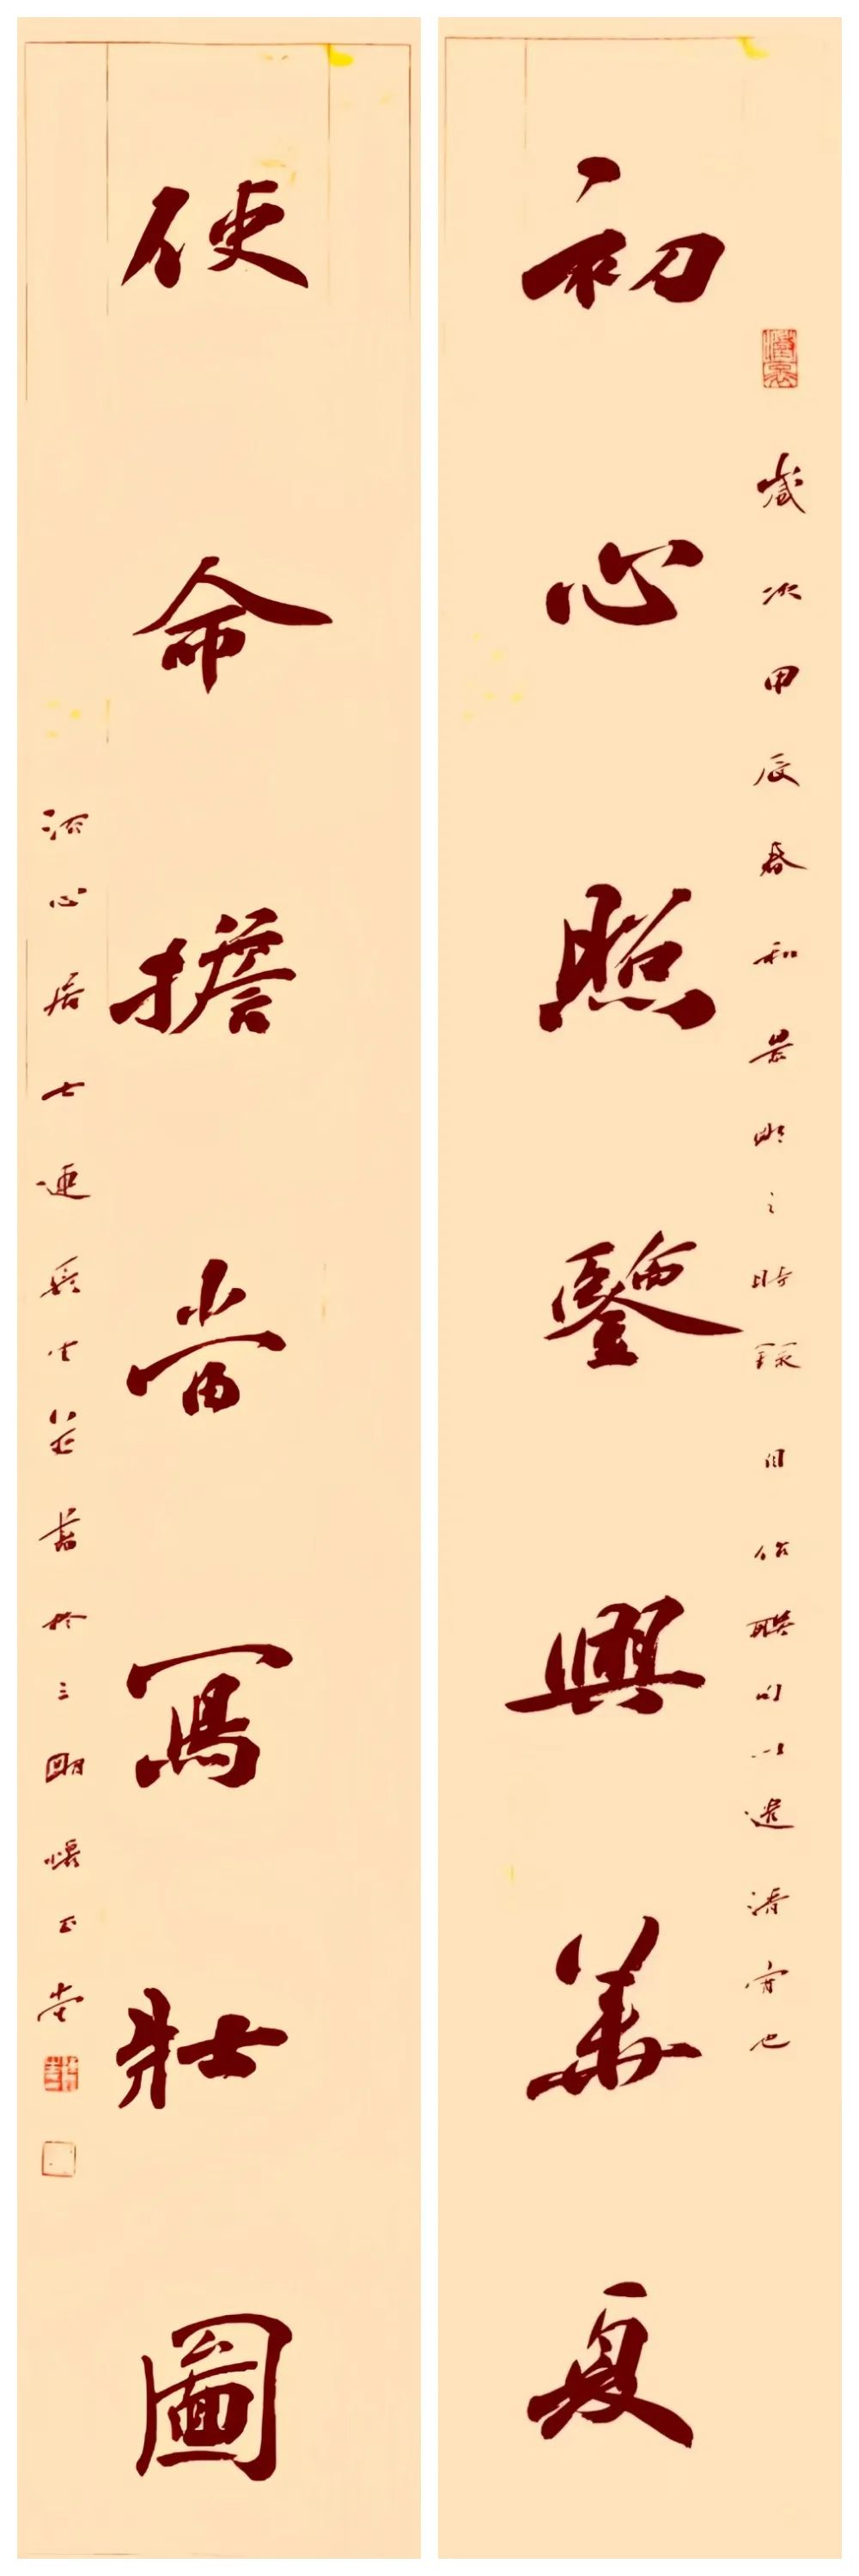 歲次甲辰春和景明之時錄自作聯句以遣清宵也
初心照鑒興華夏
使命擔當寫壯圖
沁心居士連 書於三明懷正堂